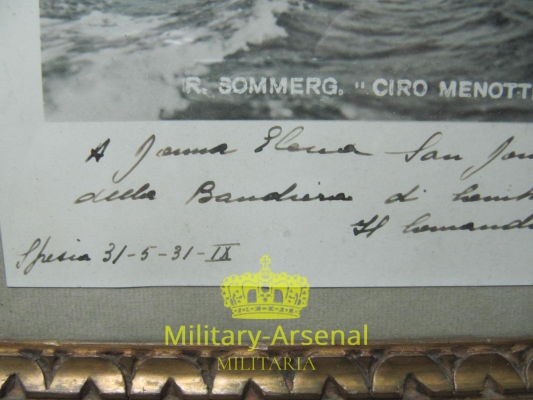 R. SOMMERG. "CIRO MENOTTI
A Donna Elena San
della Bandiera di
Il Comand
Spezia 31-5-31-IX
Military-Arsenal
MILITARIA